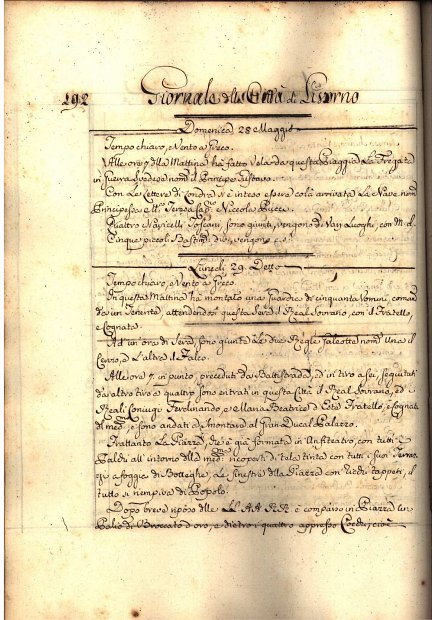 192 Giornale della Città di Livorno
Domenica 28 Maggio
Tempo chiaro, e Vento a Greco.
Alle ore 7 della Mattina ha fatto Vela da questa Spiaggia La Fregata
in Guerra Svedese nom.ta il Principe Gustavo.
Con Le Lettere di Londra si è inteso essere colà arrivata La Nave nom.
Principessa Teresa Cap.no Niccola Pucci.
Quattro Navicelli Toscani, sono giunti, vengono di Varj Luoghi, con M. el
Cinque piccoli Bastim.ti div.si vengono
Lunedì 29. Detto
Tempo chiaro, e Vento a Greco.
In questa Mattina ha montato una Guardia di cinquanta Uomini, coman
da un Tenente, attendendosi questa Sera il Real Sovrano, con il Fratello,
e Cognata.
Ad un'ora di Sera, sono giunte Le due Regie Galeotte nom.te Una il
Cervo, e L'altra il Falco.
Alle ore 7. in punto, preceduti da Battistrada, ed in tiro a sei, seguitati
da altro tiro a quattro sono entrati in questa Città il Real Sovrano, ed i
Reali Conjugi Ferdinando, e Maria Beatrice d'Este Fratello, e Cognata
di med.mo e sono andati a Smontare al Gran Ducal Palazzo.
Frattanto La Piazza, che è già formata in Anfiteatro, con tutti i
Palchi all'intorno della med.ma ricoperti di tele tinte con tutti i suoi Terraz
zi a foggia di Botteghe, Le finestre della Piazza con ricchi tappeti, il
tutto si riempiva di Popolo.
Dopo breve riposo delle LL. AA. RR. è comparso in Piazza un
Palio di Broccato d'oro, e dietro i quattro appresso